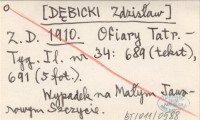 [DĘBICKI Zdzisław]
Z.D. 1910. Ofiary Tatr. -
Tyg. Il. nr 34: 689 (tekst),
691 (5 fot.).
Wypadek na Małym Jawo-
rowym Szczycie.
b/011/0588